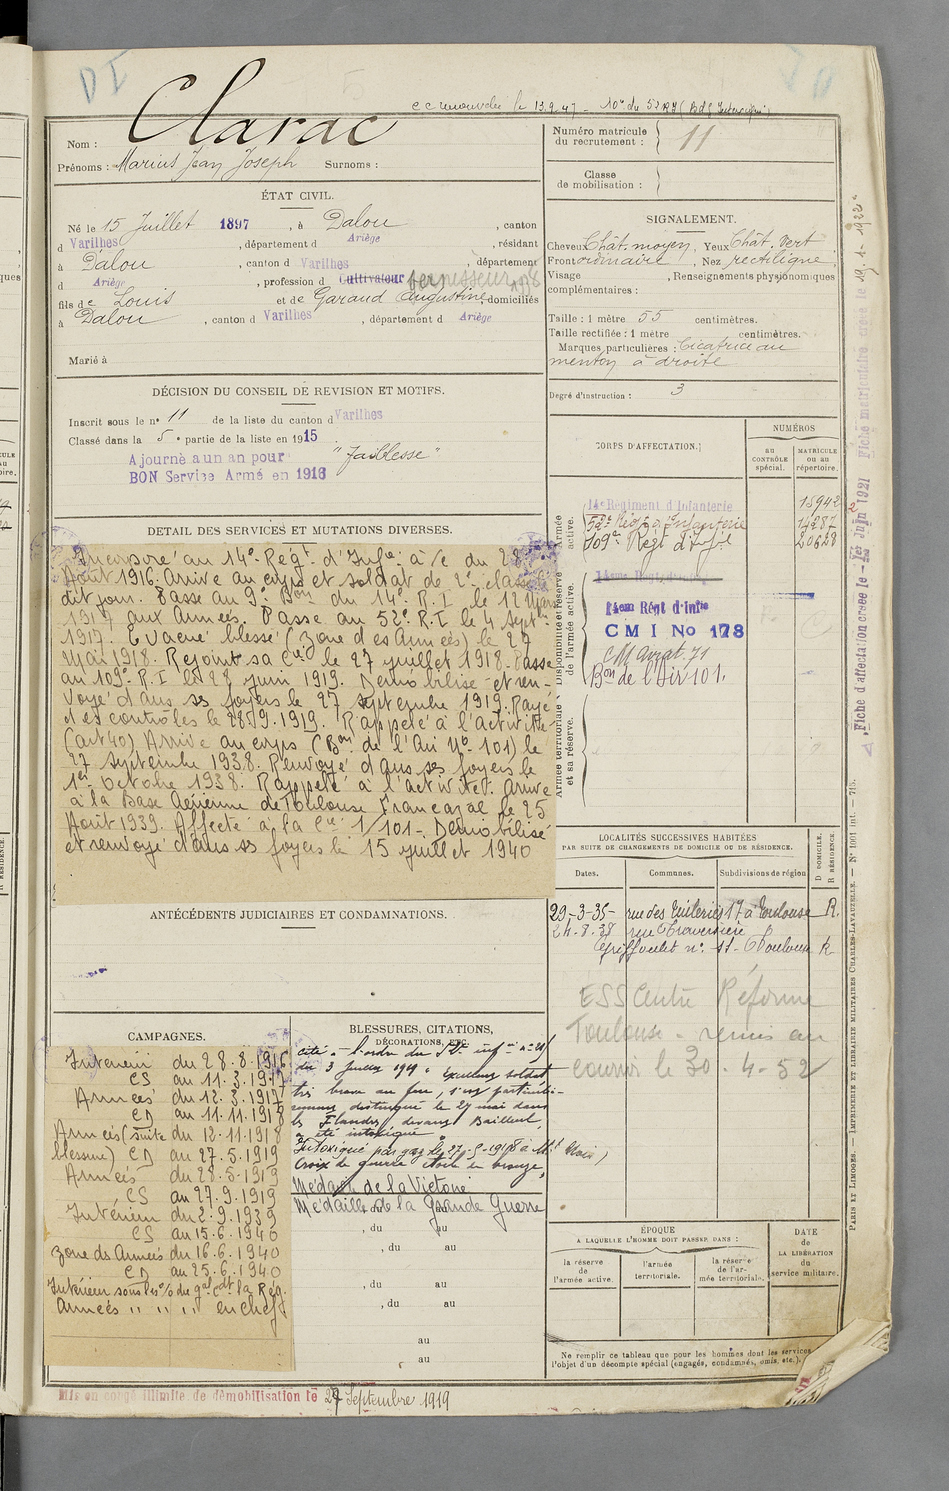 DI
cc renouvelée le 13.9.47 -
Nom : Clarac
Prénoms : Marius Jean Joseph Surnoms :
Numéro matricule
du recrutement : 11
Classe
de mobilisation :
ÉTAT CIVIL.
Né le 15 Juillet 1897, à Dalou, canton
d Varilhes, département d Ariège, résidant
à Dalou, canton d Varilhes, département
d Ariège, profession d Cultivateur
fils de Louis et de Garaud Augustine domiciliés
à Dalou, canton d Varilhes, département d Ariège
Marié à
SIGNALEMENT.
Cheveux Chât. moyen, Yeux Chât. Vert
Front ordinaire, Nez rectiligne,
Visage , Renseignements physionomiques
complémentaires :
Taille : 1 mètre 55 centimètres.
Taille rectifiée : 1 mètre centimètres.
Marques particulières : Cicatrice au
menton à droite
Degré d'instruction : 3
DÉCISION DU CONSEIL DE REVISION ET MOTIFS.
Inscrit sous le n° 11 de la liste du canton d Varilhes
Classé dans la 5e partie de la liste en 1915
Ajourné a un an pour "Faiblesse"
BON Service Armé en 1916
DETAIL DES SERVICES ET MUTATIONS DIVERSES.
Incorporé au 14e Régt d'Infie à/c du 28
Août 1916. Arrivé au corps et soldat de 2e classe
dit jour. Passé au 9e Bon du 14e R.I le 12 Mars
1917 aux Armées. Passé au 52e R.I le 4 Septbre
1917. Evacué blessé (zone des Armées) le 27
Mai 1918. Rejoint sa Cie le 27 juillet 1918. Passé
au 109e R.I le 28 juin 1919. Démobilisé et ren-
voyé dans ses foyers le 27 septembre 1919. Rayé
des contrôles le 28.9.1919. Rappelé à l'activité
(art 40) Arrivé au corps (Bon de l'Air No 101) le
27 septembre 1938. Renvoyé dans ses foyers le
1er Octobre 1938. Rappelé à l'activité. Arrivé
à la Base Aérienne de Toulouse Francazal le 25
Août 1939. Affecté à la Cie 1/101 - Démobilisé
et renvoyé dans ses foyers le 15 juillet 1940
CORPS D'AFFECTATION.
NUMÉROS
AU CONTRÔLE spécial.
MATRICULE ou au répertoire.
Armée active.
14e Régiment d'Infanterie 15942
52e Régt d'Infanterie 14287
109e Régt d'Infie 20628
Disponibilité et réserve de l'armée active.
14em Régt d'Infie
CMI No 178
Bon de l'Air 101.
Armée territoriale et sa réserve.
LOCALITÉS SUCCESSIVES HABITÉES
PAR SUITE DE CHANGEMENTS DE DOMICILE OU DE RÉSIDENCE.
Dates. Communes. Subdivisions de région. D DOMICILE. R RÉSIDENCE.
29-3-35- rue des Tuileries 17 à Toulouse R.
24.8.38 rue Traversière
Griffoulet n° 11 - Toulouse R
ESS Centre Réforme
Toulouse - remis au
courrier le 30-4-52
ANTÉCÉDENTS JUDICIAIRES ET CONDAMNATIONS.
CAMPAGNES.
Intérieur du 28.8.1916
CS au 11.3.1917
Armées du 12.3.1917
CD au 11.11.1918
Armées (suite du 12.11.1918
blessure) CD au 27.5.1919
Armées du 28.5.1919
CS au 27.9.1919
Intérieur du 2.9.1939
CS au 15.6.1940
Zone des Armées du 16.6.1940
CD au 25.6.1940
Intérieur sous les o/ du gal cdt la Rég.
Armées " " " en chef
BLESSURES, CITATIONS,
DÉCORATIONS, ETC.
Cité à l'ordre du
du 3 Juillet 1919 " Excellent soldat
très brave au feu, s'est particuliè-
rement distingué le 27 mai dans
les Flandres devant Bailleul,
a été intoxiqué "
Intoxiqué par gaz le 27-5-1918 à
Croix de guerre étoile de bronze,
Médaille de la Victoire
Médaille de la Grande Guerre
, du au
, du au
, du au
, du au
au
au
ÉPOQUE
A LAQUELLE L'HOMME DOIT PASSER DANS :
la réserve de l'armée active.
l'armée territoriale.
la réserve de l'armée territoriale.
DATE de LA LIBÉRATION du service militaire.
Ne remplir ce tableau que pour les hommes dont les services
l'objet d'un décompte spécial (engagés, condamnés, omis, etc.).
Mis en congé illimité de démobilisation le 27 Septembre 1919
Fiche d'affectation créée le 1er Juin 1921 Fiche matriculaire créée le 19.1.1922
PARIS ET LIMOGES. — IMPRIMERIE ET LIBRAIRIE MILITAIRES CHARLES-LAVAUZELLE. — N° 1001 Int. — 715.